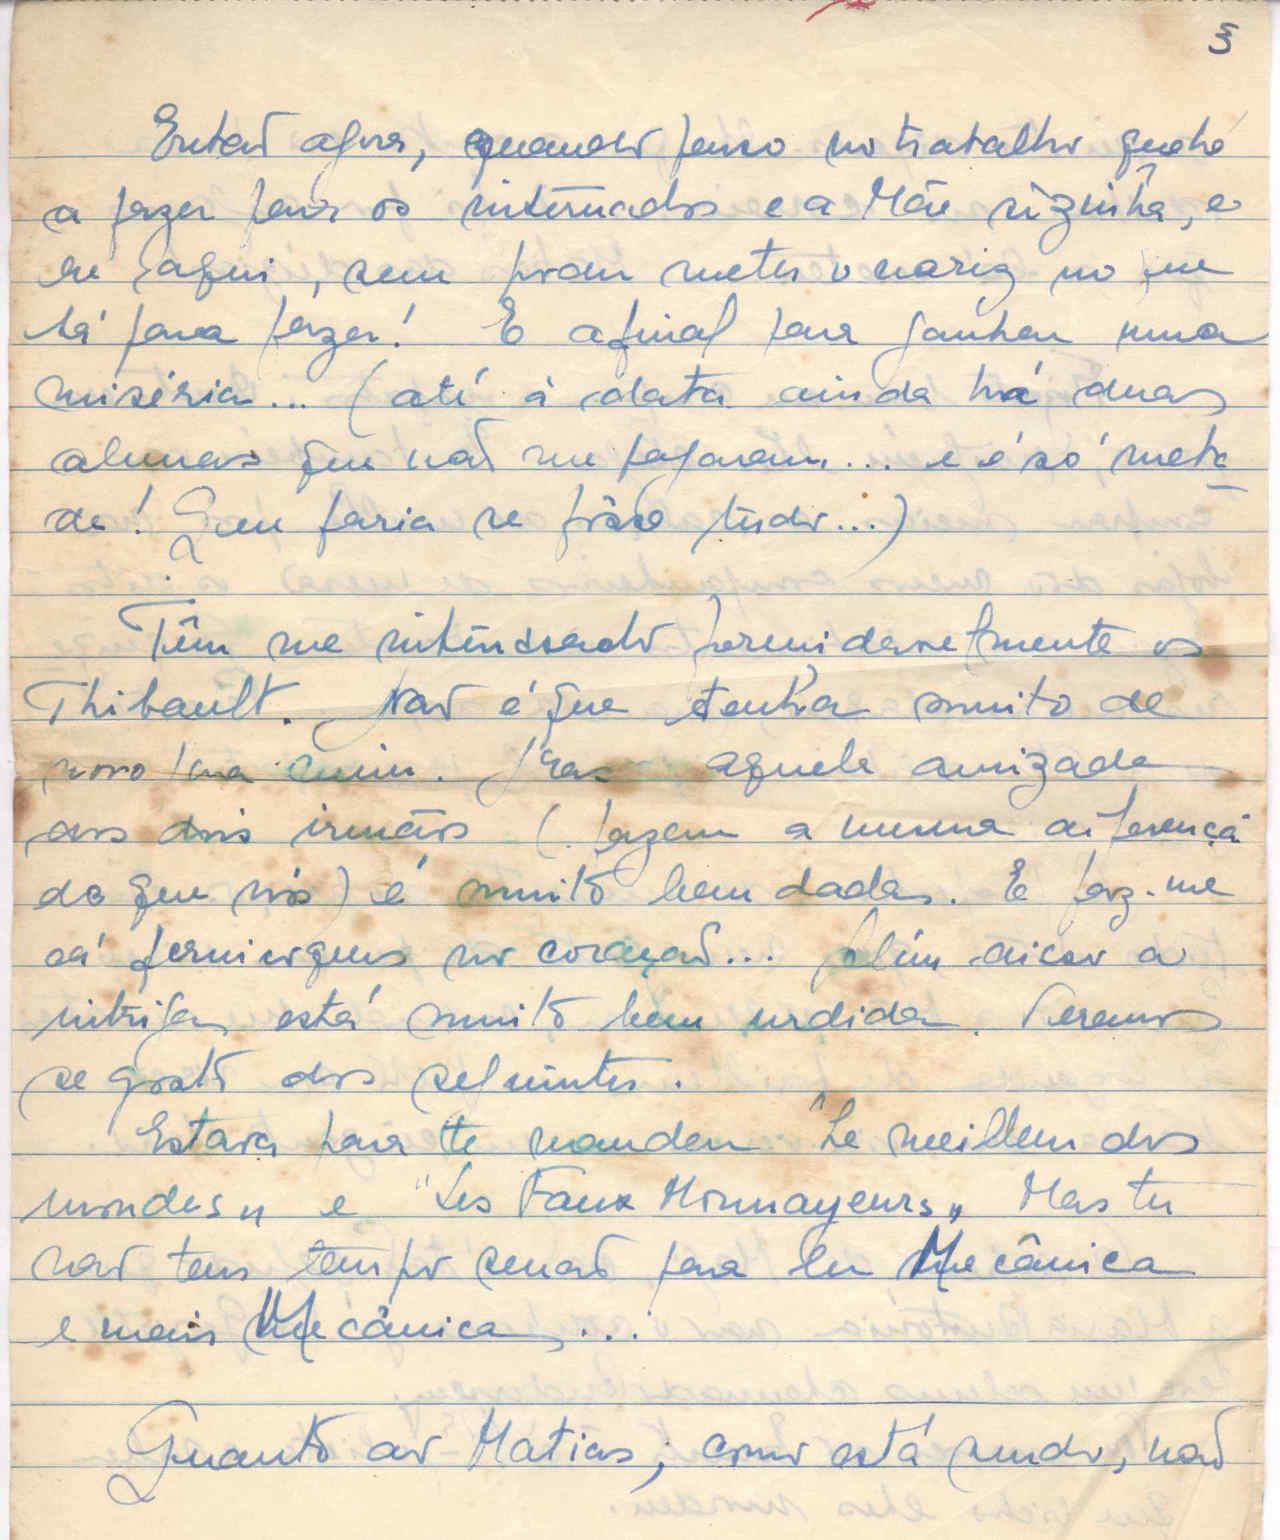 3
Entaõ agora, quando penso no trabalho que há
a fazer para os internados e a Mãe sòzinha, e
eu aqui, sem poder meter o nariz no que
há para fazer! E afinal para ganhar uma
miséria... (até à data ainda há duas
alunas que naõ me pagaram... e é só meta
de! Que faria se fôsse tudo...)
Têm me interessado formidavelmente os
Thibault. Naõ é que tenha muito de
novo para mim. Mas aquela amizade
dos dois irmãos (fazem a mesma diferença
do que nós) é muito bem dada. E faz-me
cá fernicoques no coraçaõ... Além disso a
intriga está muito bem urdida. Veremos
se gosto dos seguintes.
Estava para te mandar "Le meilleur des
mondes" e "Les Faux Monnayeurs" Mas tu
naõ tens tempo senaõ para ler Mecânica
e mais Mecânica...
Quanto ao Matias, como está mudo, naõ